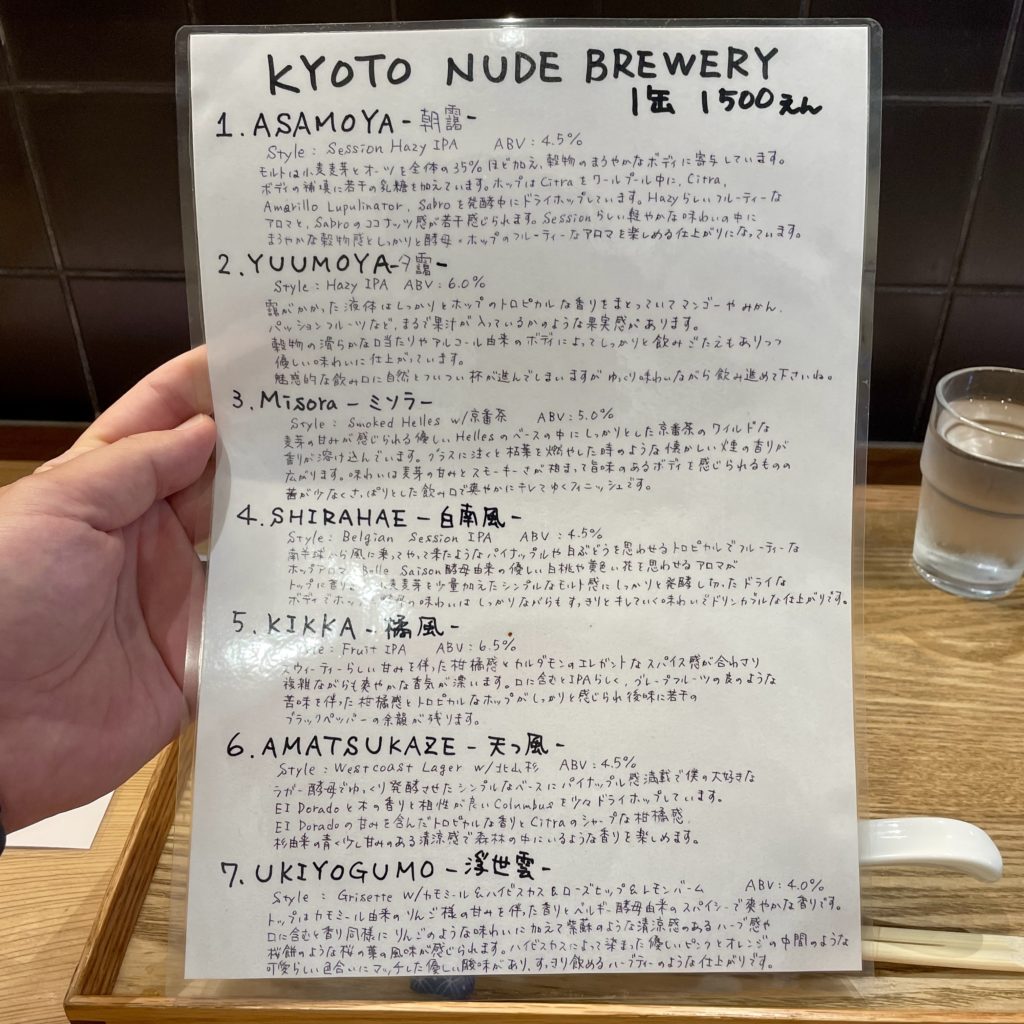 KYOTO NUDE BREWERY
1缶 1500えん
1. ASAMOYA - 朝靄 -
Style : Session Hazy IPA ABV : 4.5%
モルトは小麦麦芽とオーツを全体の35%ほど加え、穀物のまろやかなボディに寄与しています。
ボディの補填に若干の乳糖を加えています。ホップはCitraをワールプール中に、Citra,
Amarillo Lupulinator, Sabroを発酵中にドライホップしています。Hazyらしいフルーティーな
アロマと、Sabroのココナッツ感が若干感じられます。Sessionらしい軽やかな味わいの中に
まろやかな穀物感としっかりと酵母・ホップのフルーティーなアロマを楽しめる仕上がりになっています。
2. YUUMOYA - 夕靄 -
Style : Hazy IPA ABV : 6.0%
靄がかかった液体はしっかりとホップのトロピカルな香りをまとっていてマンゴーやみかん、
パッションフルーツなど、まるで果汁が入っているかのような果実感があります。
穀物の滑らかな口当たりやアルコール由来のボディによってしっかりと飲みごたえもありつつ
優しい味わいに仕上がっています。
魅惑的な飲み口に自然とついつい杯が進んでしまいますがゆっくり味わいながら飲み進めて下さいね。
3. Misora - ミソラ -
Style : Smoked Helles w/京番茶 ABV : 5.0%
麦芽の甘みが感じられる優しいHellesのベースの中にしっかりとした京番茶のワイルドな
香りが溶け込んでいます。グラスに注ぐと枯葉を燃やした時のような懐かしい煙の香りが
広がります。味わいは麦芽の甘みとスモーキーさが相まって旨味のあるボディを感じられるものの
苦が少なくさっぱりとした飲み口で爽やかにキレてゆくフィニッシュです。
4. SHIRAHAE - 白南風 -
Style : Belgian Session IPA ABV : 4.5%
南半球から風に乗ってやって来たようなパイナップルや白ぶどうを思わせるトロピカルでフルーティーな
ホップアロマ Belle Saison酵母由来の優しい白桃や黄色い花を思わせるアロマが
トップに香り 小麦麦芽を少量加えたシンプルなモルト感にしっかりと発酵し切ったドライな
ボディでホップ 酵母の味わいはしっかりながらもすっきりとキレていく味わいでドリンカブルな仕上がりです。
5. KIKKA - 橘風 -
Style : Fruit IPA ABV : 6.5%
スウィーティーらしい甘みを伴った柑橘感とカルダモンのエレガントなスパイス感が合わさり
複雑ながらも爽やかな香気が漂います。口に含むとIPAらしく、グレープフルーツの皮のような
苦味を伴った柑橘感とトロピカルなホップがしっかりと感じられ後味に若干の
ブラックペッパーの余韻が残ります。
6. AMATSUKAZE - 天つ風 -
Style : Westcoast Lager w/北山杉 ABV : 4.5%
ラガー酵母でゆっくり発酵させたシンプルなベースにパイナップル感満載で僕の大好きな
El Doradoと木の香りと相性が良いColumbusを少々ドライホップしています。
El Doradoの甘みを含んだトロピカルな香りとCitraのシャープな柑橘感、
杉由来の青く少し甘みのある清涼感で森林の中にいるような香りを楽しめます。
7. UKIYOGUMO - 浮世雲 -
Style : Grisette w/カモミール&ハイビスカス&ローズヒップ&レモンバーム ABV : 4.0%
トップはカモミール由来のりんご様の甘みを伴った香りとベルギー酵母由来のスパイシーで爽やかな香りです。
口に含むと香り同様にりんごのような味わいに加えて紫蘇のような清涼感のあるハーブ感や
桜餅のような桜の葉の風味が感じられます。ハイビスカスによって染まった優しいピンクとオレンジの中間のような
可愛らしい色合いにマッチした優しい酸味があり、すっきり飲めるハーブティーのような仕上がりです。